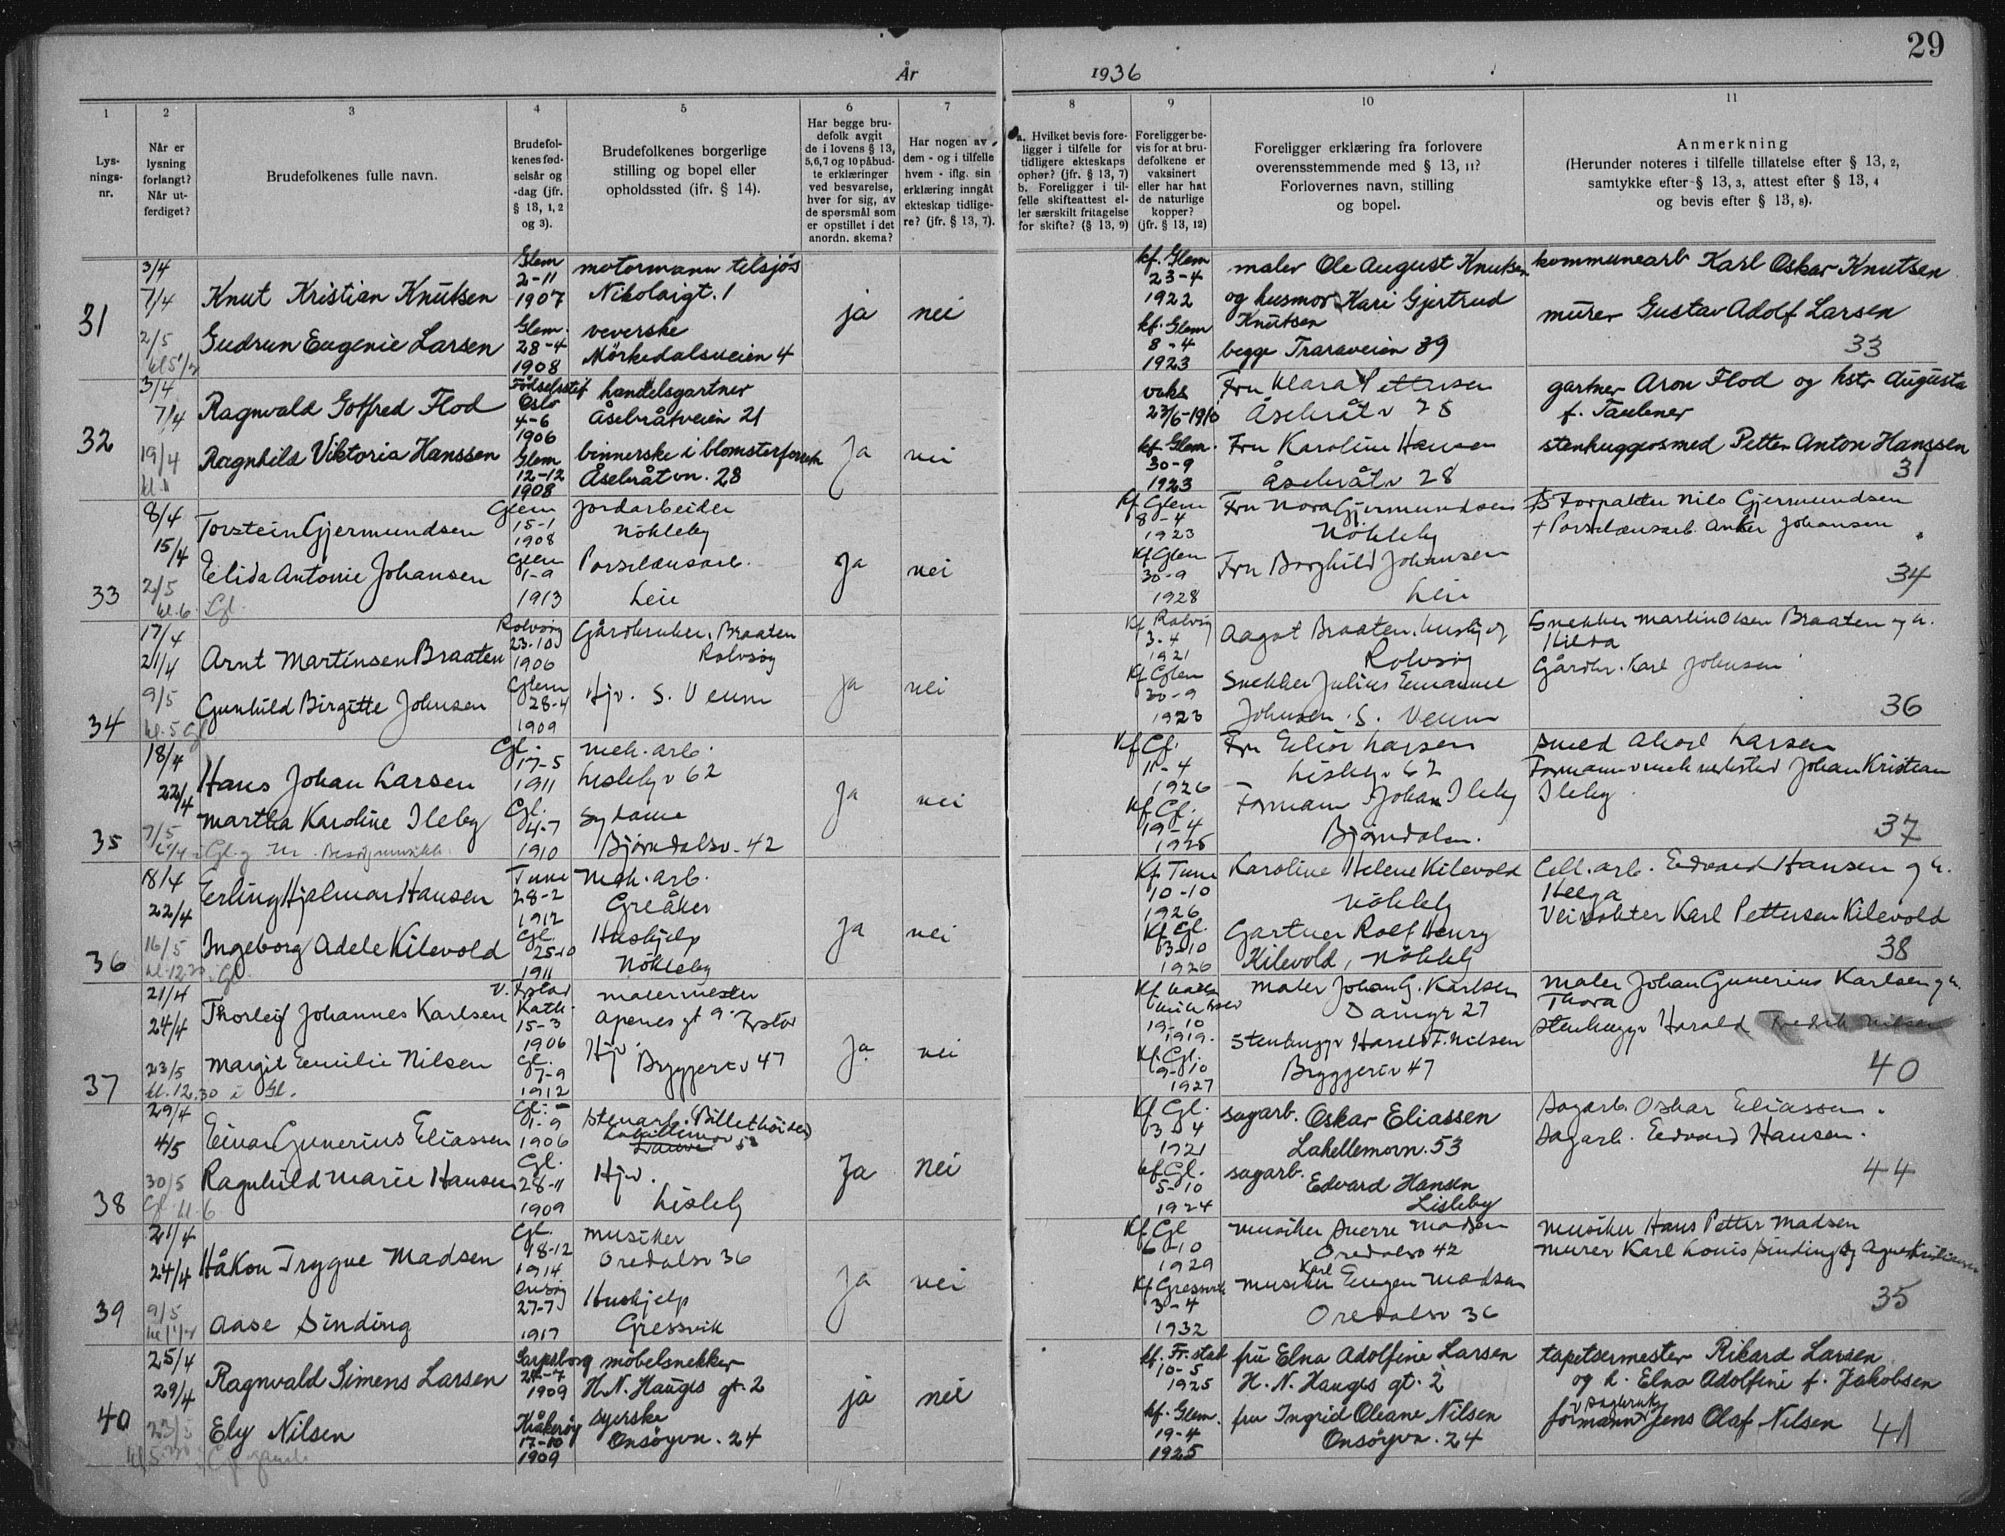 29
År 1936
1 2 3 4 5 6 7 8 9 10 11
Lys-
nings-
nr.
Når er
lysning
forlangt?
Når ut-
ferdiget?
Brudefolkenes fulle navn.
Brudefol-
kenes fød-
selsår og
-dag (jfr.
§ 13, 1, 2
og 3).
Brudefolkenes borgerlige
stilling og bopel eller
opholdssted (jfr. § 14).
Har begge bru-
defolk avgit
de i lovens § 13,
5,6,7 og 10 påbud-
te erklæringer
ved besvarelse,
hver for sig, av
de spørsmål som
er opstillet i det
anordn. skema?
Har nogen av
dem - og i tilfelle
hvem - iflg. sin
erklæring inngåt
ekteskap tidlige-
re? (jfr. § 13, 7).
a. Hvilket bevis fore-
ligger i tilfelle for
tidligere ekteskaps
ophør? (jfr. § 13, 7)
b. Foreligger i til-
felle skifteattest el-
ler særskilt fritagelse
for skifte? (§ 13, 9)
Foreligger be-
vis for at bru-
defolkene er
vaksinert
eller har hat
de naturlige
kopper?
(jfr. § 13, 12)
Foreligger erklæring fra forlovere
overensstemmende med § 13, 11?
Forlovernes navn, stilling
og bopel.
Anmerkning
(Herunder noteres i tilfelle tillatelse efter § 13, 2,
samtykke efter § 13, 3, attest efter § 13, 4
og bevis efter § 13, 8).
31
3/4
7/4
2/5
kl 5 1/2
Knut Kristian Knutsen
Gudrun Eugenie Larsen
Glem
2-11
1907
Glem.
28-4
1908
motormann tilsjøs
Nikolaigt. 1
veverske
Mörkedalsveien 4
ja nei
kf. Glem
23-4
1922
kf. Glem
8-4
1923
maler Ole August Knutsen
og husmor Kari Gjertrud
Knutsen
begge Traraveien 39
kommunearb Karl Oskar Knutsen
murer Gustav Adolf Larsen
33
32
3/4
7/4
19/4
Ragnvald Gotfred Flod
Ragnhild Viktoria Hanssen
Oslo
4-6
1906
Glem
12-12
1908
handelsgartner
Åsebråtveien 21
binnerske i blomsterforretn
Åsebråtvn. 28
Ja nei
vaks
23/6-1910
kf. Glem.
30-9
1923
Fru Klara Pettersen
Åsebråtv 25
Fru Karoline Hansen
Åsebråtv 28
gartner Aron Flod og hstr Augusta
f. Taubner
stenhuggersmed Petter Anton Hanssen
31
33
8/4
15/4
2/5
kl. 6. Gl.
Torstein Gjermundsen
Elida Antonie Johansen
Glem
15-1
1908
Glem
1-9
1913
Jordarbeider
Nökleby
Porselensarb.
Leie
Ja nei
Kf Glem
8-4
1923
Kf Glem
30-9
1928
Fru Nora Gjermundsen
Nökleby
Fru Borghild Johansen
Leie
Forpakter Nils Gjermundsen
+ Porselænsarb. Anker Johansen
34
34
17/4
21/4
9/5
kl. 5 Gl
Arnt Martinsen Braaten
Gunhild Birgitte Johnsen
Rolvsöy
23-10
1906
Glem
28-4
1909
Gårdbruker. Braaten
Rolvsöy
Hjv. S. Veum
Ja nei
Kf Rolvsöy
3-4
1921
Kf Glem
30-9
1923
Aagot Braaten
Rolvsöy
Snekker Julius Emanuel
Johnsen. S. Veum
Snekker Martin Olsen Braaten og h.
Hilda
Gårdbr. Karl Johnsen
36
35
18/4
22/4
7/5
Hans Johan Larsen
Martha Karoline Ileby
Gl.
17-5
1911
Gl.
4-7
1910
mek. arb.
Lisleby v 62
Sydame
Bjørndalsv. 42
Ja nei
Kf. Gl.
11-4
1926
Kf. Gl.
19-4
1925
Fru Elise Larsen
Lisleby v 62
Formann Johan Ileby
Bjørndalen.
Smed Aksel Larsen
Formann v mek verksted Johan Kristian
Ileby.
37
36
18/4
22/4
16/5
kl. 12.30. Gl.
Erling Hjalmar Hansen
Ingeborg Adele Kilevold
Tune
28-2
1912
Gl.
25-10
1911
Mek. arb.
Greåker
Hushjelp
Nökleby
Ja nei
Kf Tune
10-10
1926
Kf Gl.
3-10
1926
Karoline Helene Kilevold
Nökleby
Gartner Rolf Henry
Kilevold, Nökleby
Cell. arb. Edvard Hansen g h.
Helga
Veivokter Karl Pettersen Kilevold
38
37
21/4
24/4
23/5
kl. 12.30 i Gl.
Thorleif Johannes Karlsen
Margit Emilie Nilsen
V. Frstad
Kath.
15-3
1906
Gl.
7-9
1912
malermester
Apenes gt 9. Frstad
Hjv.
Bryggeriv 47
Ja. nei
19-10
1919.
Kf. Gl.
9-10
1927
Maler Johan G. Karlsen
Damgt 27
Stenhugger Harald F. Nilsen
Bryggeriv 47
Maler Johan Gunerius Karlsen g h.
Thora
Stenhugger Harald Fredrik Nilsen
40
38
29/4
4/5
30/5
Gl. kl. 6
Einar Gunerius Eliassen
Ragnhild Marie Hansen
Gl.
1-9
1906
Gl.
28-11
1909
Lahellemov 53
Hjv.
Lisleby
Ja nei
Kf Gl.
3-4
1921
kf Gl.
5-10
1924
sagarb. Oskar Eliassen
Lahellemovn. 53
sagarb.
Edvard Hansen
Lisleby
Sagarb. Oskar Eliassen.
Sagarb. Edvard Hansen.
44
39
21/4
24/4
9/5
Håkon Trygve Madsen
Aase Sinding
Gl.
18-12
1914
Onsöy
27-7
1917
musiker
Oredalsv 36
Hushjelp
Gressvik
Ja nei
Kf Gl
6-10
1929
Kf Gressvik
3-4
1932
Musiker Sverre Madsen
Oredalsv 42
Karl
Musiker Eugen Madsen
Oredalsv 36
Musiker Hans Petter Madsen
Murer Karl Louis Sinding og Agnes Kristiansen
35
40
25/4
29/4
Ragnvald Simens Larsen
Ely Nilsen
Sarpsborg
24-7
1909
Kråkeröy
17-10
1909
möbelsnekker
H. N. Hauges gt. 2
syerske
Onsöyvn. 24
ja nei
kf. Fr.stad
10-5
1925
kf. Glem.
19-4
1925
fru Elna Adolfine Larsen
H. N. Hauges gt. 2
fru Ingrid Oleane Nilsen
Onsöyvn. 24
tapetsermester Rikard Larsen
og h. Elna Adolfine f. Jakobsen
v Dagbruk
formann Jens Olaf Nilsen
41